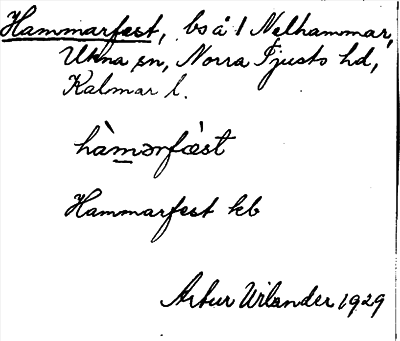 Hammarfest, bs å 1 Nelhammar,
Ukna sn, Norra Tjusts hd,
Kalmar l.
hàmərfæ̀st
Hammarfest kb
Artur Wilander 1929